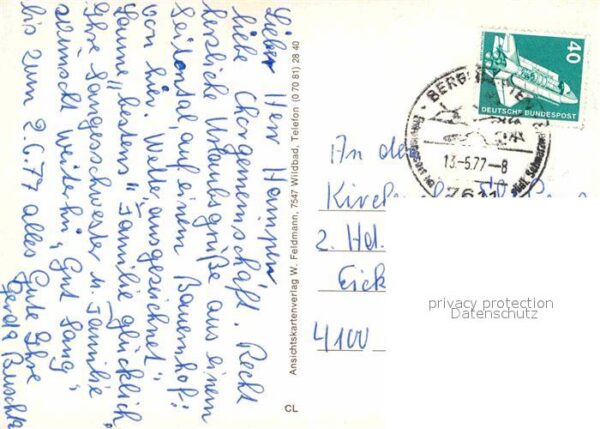 Lieber Herr Hampen
liebe Chorgemeinschaft. Recht
herzliche Urlaubsgrüße aus einem
Seitental, auf einem Bauernhof!
von hier. Wetter, ausgezeichnet"
Laune "bestens" Familie glücklich,
Ihre Sangesschwester u. Familie
wünscht weiterhin, Gut Sang"
bis zum 2.6.77 alles Gute Ihre
Gerda
Ansichtskartenverlag W. Feldmann, 7547 Wildbad, Telefon (0 70 81) 28 40
CL
40
DEUTSCHE BUNDESPOST
13.-5.77.-8
7611
An de
Kirch
2. Hd.
Eick
4100
privacy protection
Datenschutz